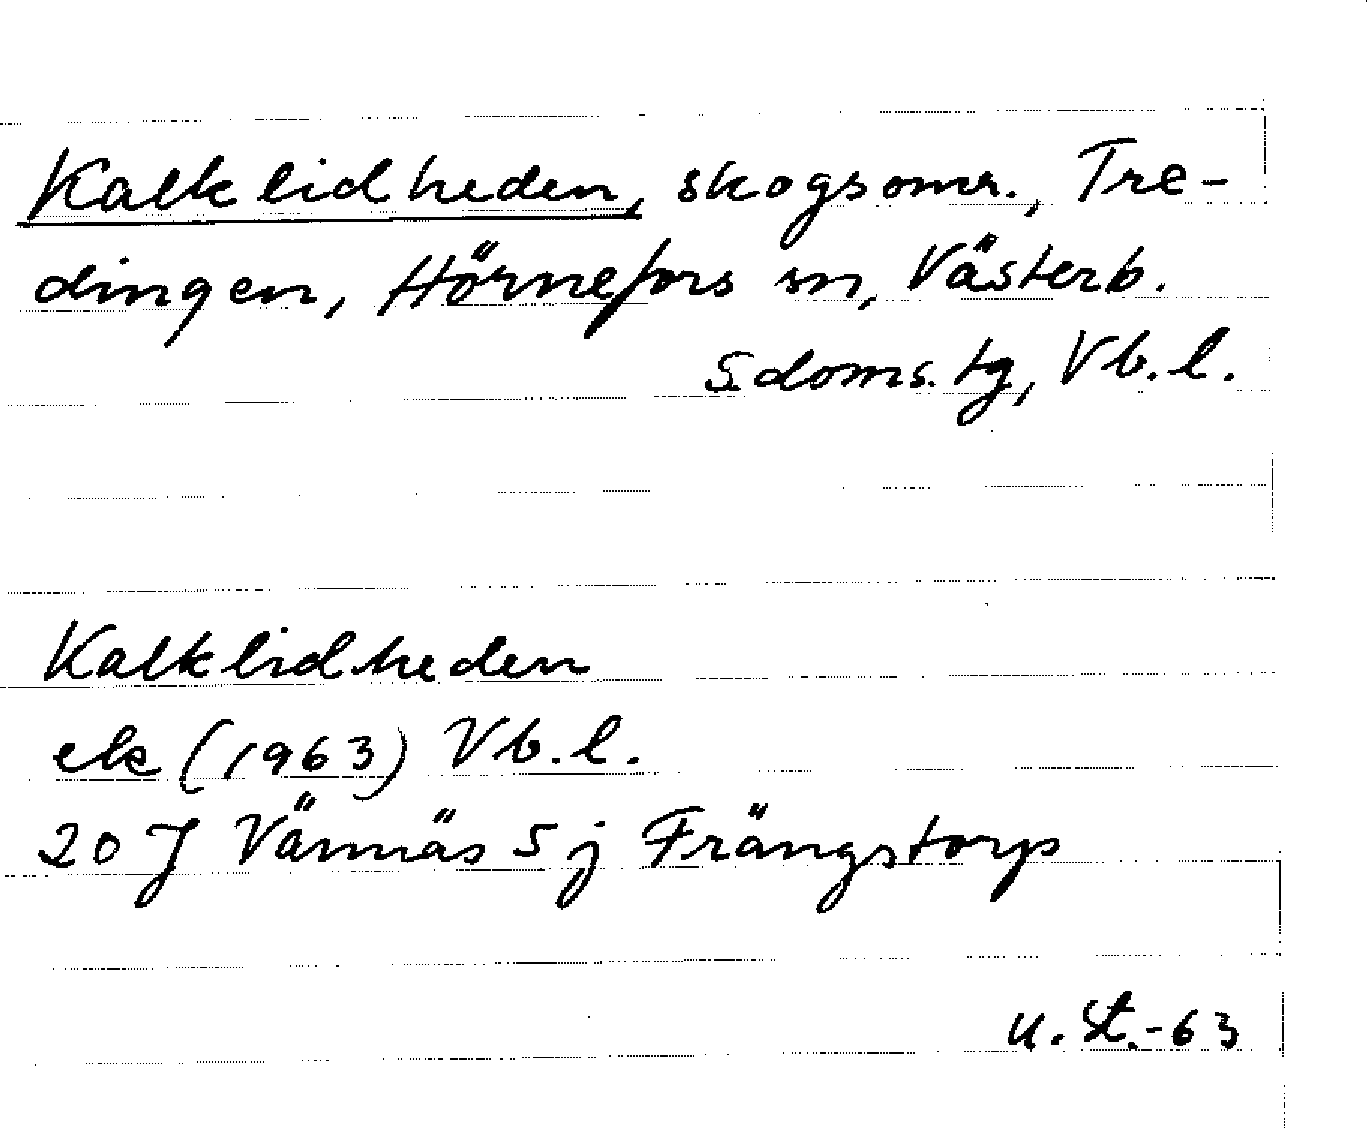 Kalklidheden, skogsomr., Tre-
dingen, Hörnefors sn, Västerb.
s. doms. tg, Vb. l.
Kalklidheden
ek (1963) Vb. l.
20 J Vännäs 5 j Frängstorp
U. St.-63